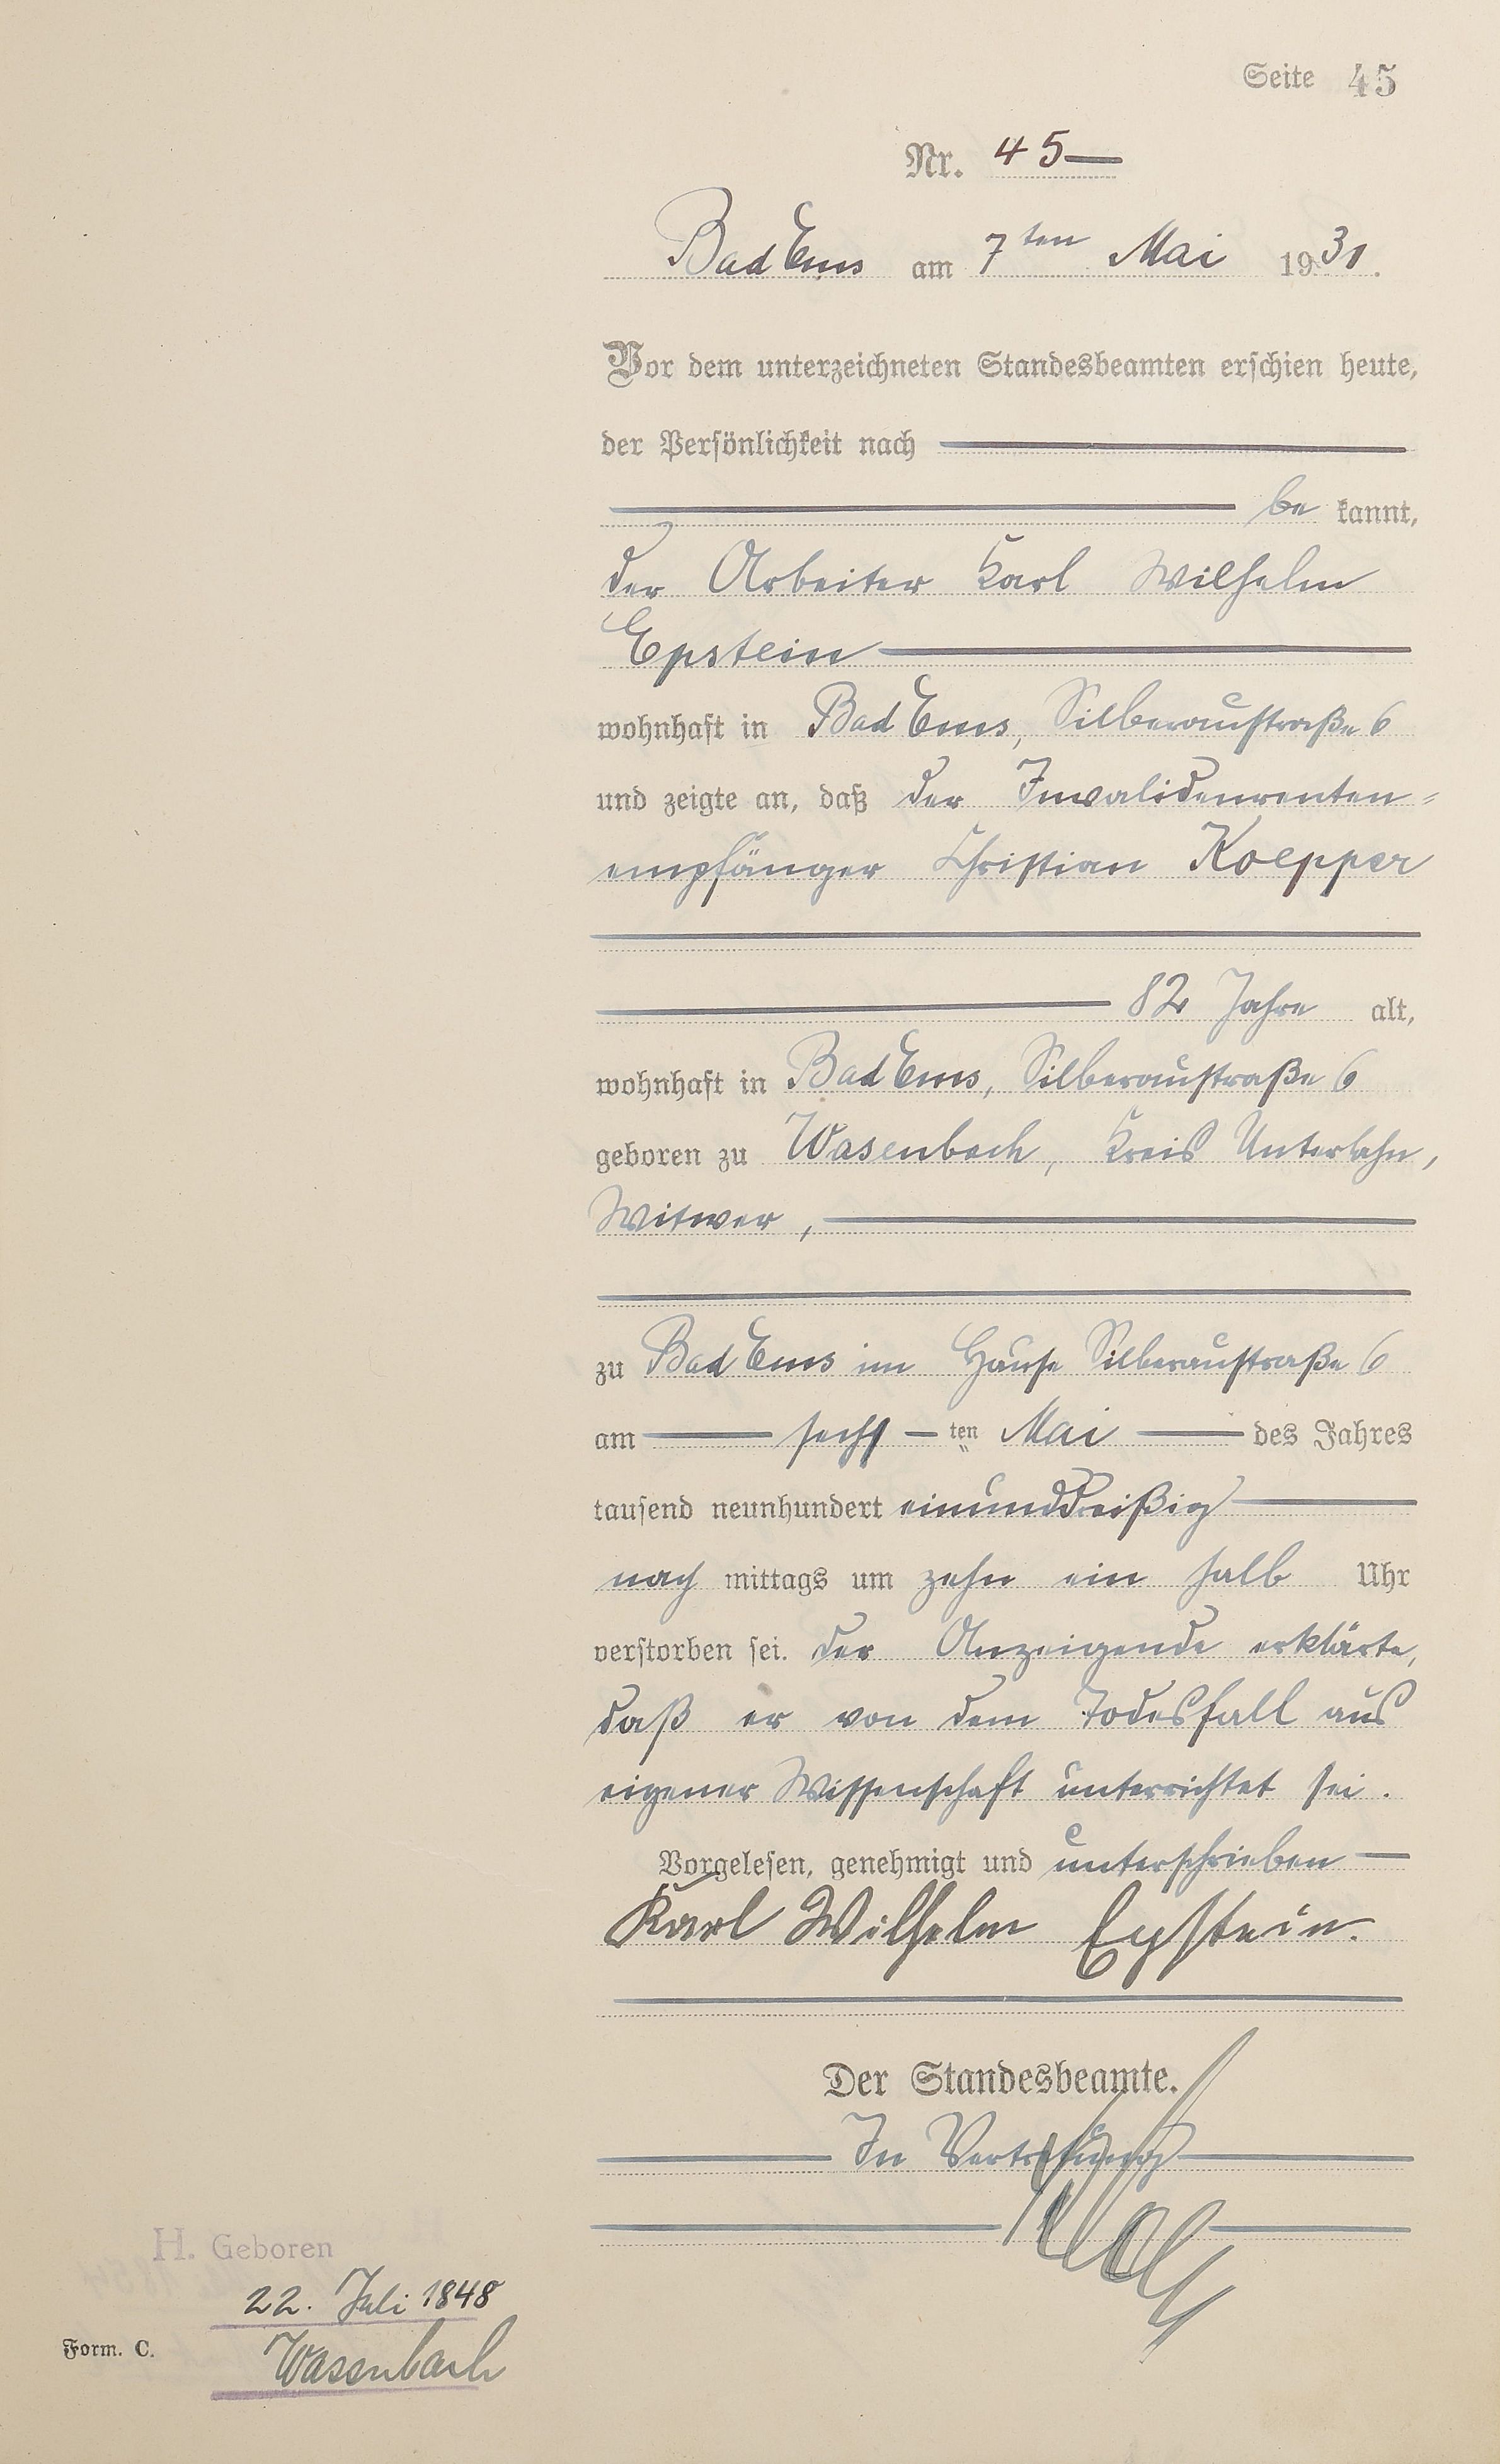 Seite 45
Nr. 45
Bad Ems am 7ten Mai 1931.
Vor dem unterzeichneten Standesbeamten erschien heute,
der Persönlichkeit nach
be kannt,
der Arbeiter Karl Wilhelm
Epstein
wohnhaft in Bad Ems, Silberaustraße 6
und zeigte an, daß der Invalidenrenten=
empfänger Christian Koepper
82 Jahre alt,
wohnhaft in Bad Ems, Silberaustraße 6
geboren zu Wasenbach, Kreis Unterlahn,
Witwer,
zu Bad Ems im Hause Silberaustraße 6
am sechs ten Mai des Jahres
tausend neunhundert einunddreißig
nach mittags um zehn ein halb Uhr
verstorben sei. Der Anzeigende erklärte,
daß er von dem Todesfall aus
eigener Wissenschaft unterrichtet sei.
Vorgelesen, genehmigt und unterschrieben
Karl Wilhelm Epstein.
Der Standesbeamte.
In Vertretung
H. Geboren
22. Juli 1848
Wasenbach
Form. C.